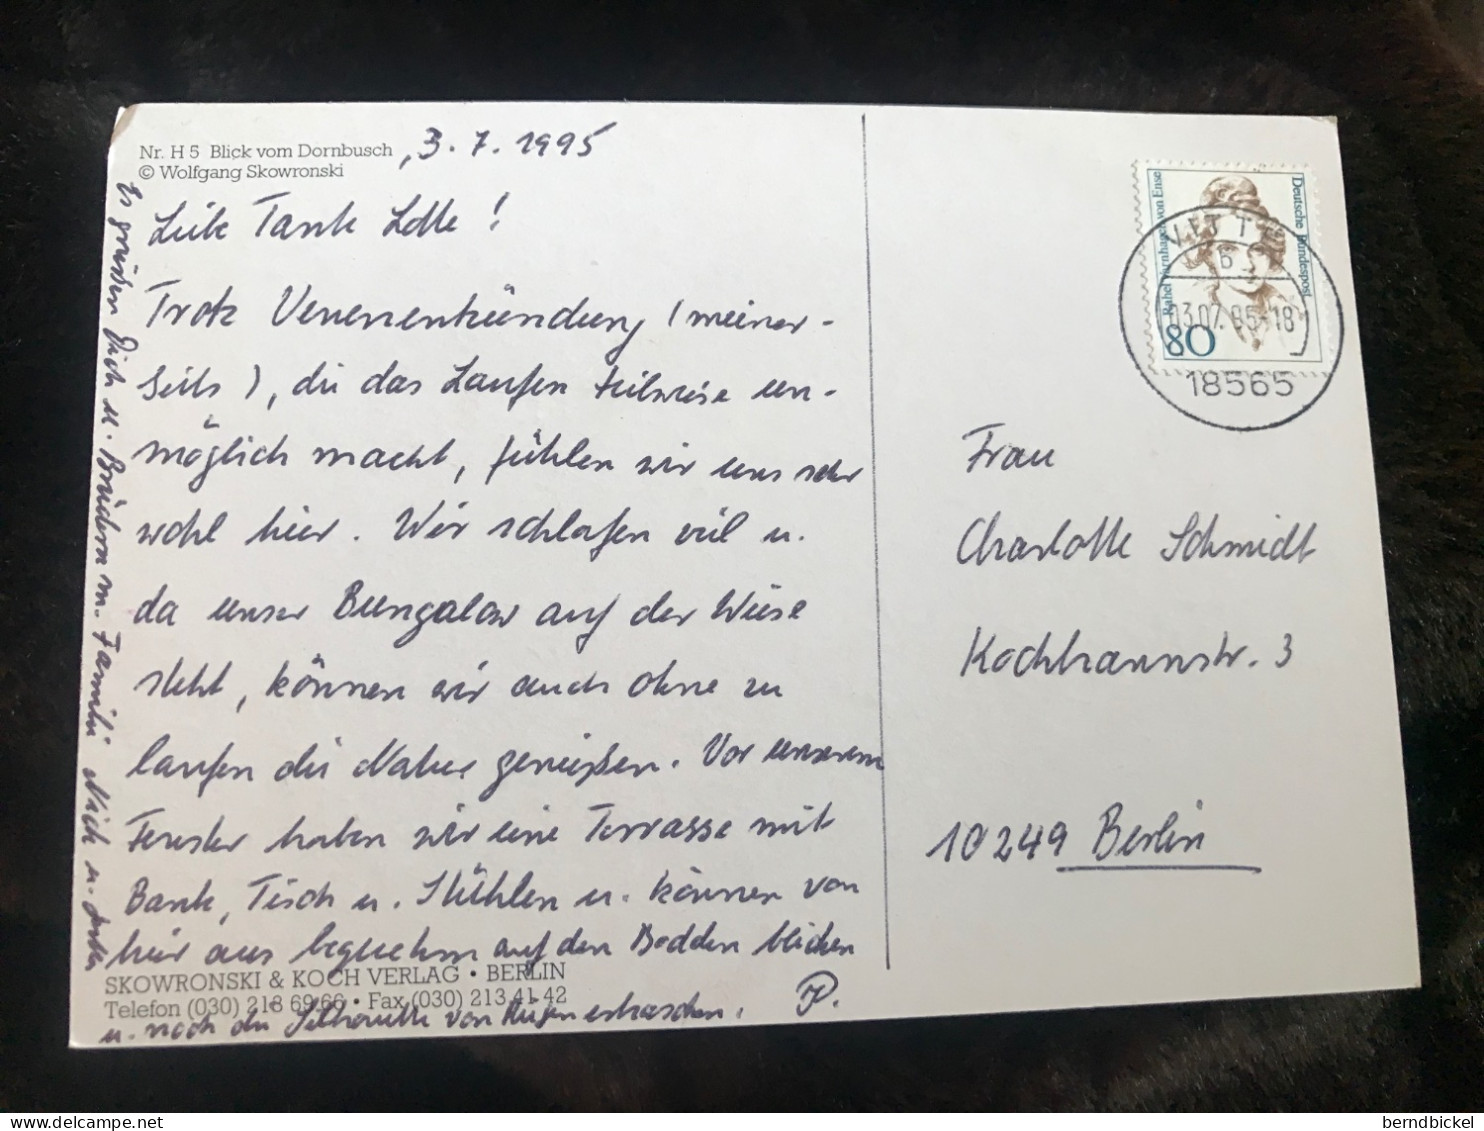 Nr. H 5 Blick vom Dornbusch , 3. 7. 1995
© Wolfgang Skowronski
Liebe Tante Lotte !
Trotz Venenentzündung (meiner-
seits), die das Laufen teilweise un-
möglich macht, fühlen wir uns sehr
wohl hier. Wir schlafen viel u.
da unser Bungalow auf der Wiese
steht, können wir auch ohne zu
laufen die Natur genießen. Vor unserem
Fenster haben wir eine Terrasse mit
Bank, Tisch u. Stühlen u. können von
hier aus bequem auf den Bodden blicken
u. noch die Silhouette von Rügen erhaschen.
Es grüßen Dich u. Brüdern m. Familie
SKOWRONSKI & KOCH VERLAG • BERLIN
Telefon (030) 213 69 66 • Fax (030) 213 41 42
Deutsche Bundespost
Rahel Varnhagen von Ense
80
VITTE
b
03.07.95-18
18565
Frau
Charlotte Schmidt
Kochhannstr. 3
10249 Berlin
berndbickel